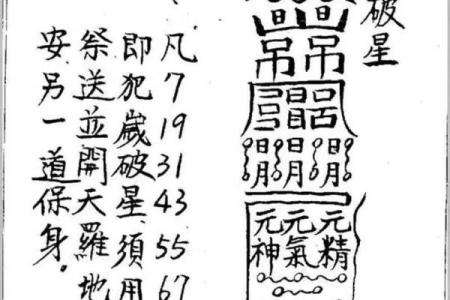 破星
吊吊
日月 日月 日月
元精
元氣
元神
凡7 19 31 43 55 67
即犯歲破星須用
祭送並開天羅地
安另一道保身。